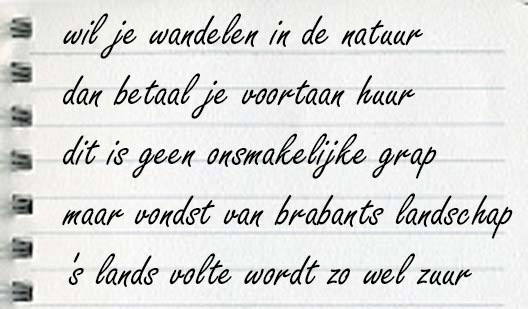 wil je wandelen in de natuur
dan betaal je voortaan huur
dit is geen onsmakelijke grap
maar vondst van brabants landschap
's lands volte wordt zo wel zuur